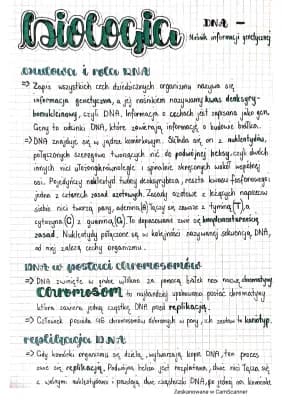 Biologia
DNA -
Nośnik informacji genetycznej
Budowa i rola DNA
=> Zapis wszystkich cech dziedzicznych organizmu nazywa się
informacją genetyczną, a jej nośnikiem nazywamy kwas deoksyry-
bonukleinowy, czyli DNA. Informacja o cechach jest zapisana jako gen.
Geny to odcinki DNA, które zawierają informację o budowie białka.
=> DNA znajduje się w jądrze komórkowym. Składa się on z nukleotydów,
połączonych szeregowo tworzących nić do podwójnej helisy, czyli dwóch
innych nici i spiralnie skręconych wokół wspólnej
osi. Pojedyńczy nukleotyd tworzy deoksyryboza, reszta kwasu fosforowego i
jedna z czterech zasad azotowych. Zasady azotowe z leżących naprzeciw
siebie nici tworzą pary, adenina(A) łączy się zawsze z tyminą(T), a
cytozyna(C) z guaniną(G). To dopasowanie zwie się komplementarnością
zasad. Nukleotydy połączone są w kolejności zazywanej sekwencją DNA,
od niej zależą cechy organizmu.
DNA w postaci chromosomów
=> DNA zwinięte w jądrze włókna za pomocą białek nosi nazwę chromatyny
Chromosom to najbardziej upakowana postać chromatyny
która zawiera jedną cząstkę DNA przed replikacją.
=> Człowiek posiada 46 chromosomów dobranych w pary, ich zestaw to kariotyp.
replikacja DNA
=> Gdy komórki organizmu się dzielą, wytwarzają kopie DNA, ten proces
zwie się replikacją. Podwójna helisa jest rozplatana, dwie nici łączą się
z wolnymi nukleotydami i powstają dwie cząsteczki DNA, po jednej na komórkę
Zeskanowane w CamScanner